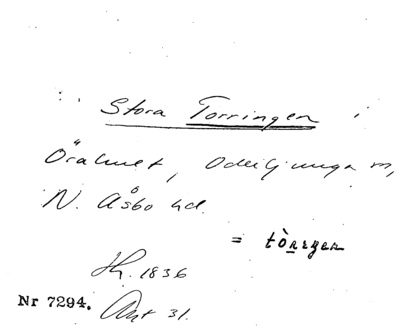 Stora Torringen i
Örahult, Oderljunga sn,
N. Åsbo hd.
= tòrrgen
Hj. 1836
Nr 7294. Ant 31.